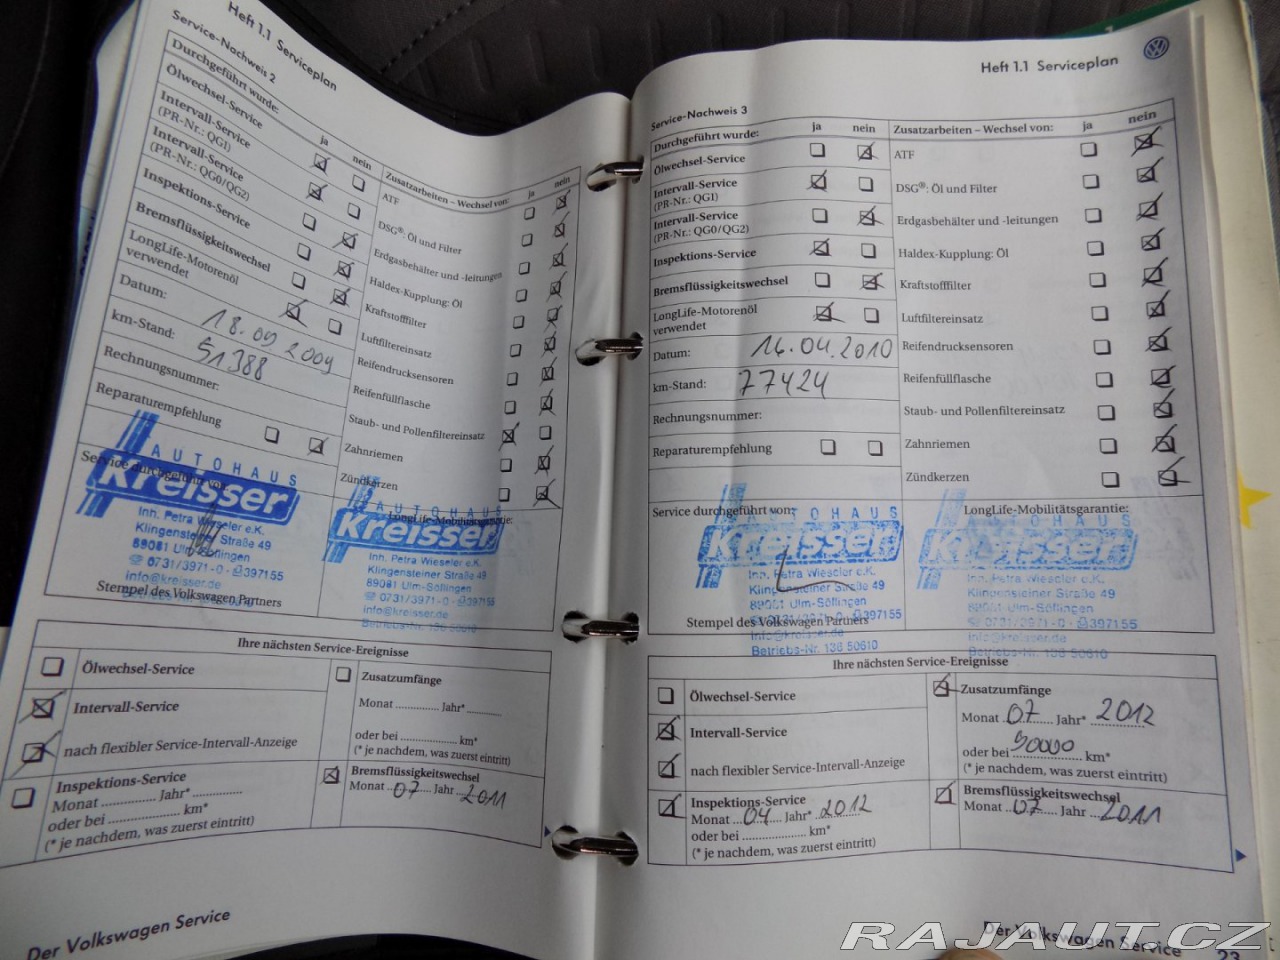 Heft 1.1 Serviceplan
Service-Nachweis 2
Durchgeführt wurde:
ja
nein
Ölwechsel-Service
Intervall-Service
(PR-Nr.: QG1)
Intervall-Service
(PR-Nr.: QG0/QG2)
Inspektions-Service
Bremsflüssigkeitswechsel
LongLife-Motorenöl
verwendet
Datum: 18.09 2009
km-Stand: 51388
Rechnungsnummer:
Reparaturempfehlung
Zusatzarbeiten – Wechsel von:
ja
nein
ATF
DSG®: Öl und Filter
Erdgasbehälter und -leitungen
Haldex-Kupplung: Öl
Kraftstofffilter
Luftfiltereinsatz
Reifendrucksensoren
Reifenfüllflasche
Staub- und Pollenfiltereinsatz
Zahnriemen
Zündkerzen
Service durchgeführt von:
AUTOHAUS
Kreisser
Inh. Petra Wieseler e.K.
Klingensteiner Straße 49
89081 Ulm-Söflingen
☏ 0731/3971-0 · 397155
info@kreisser.de
Stempel des Volkswagen Partners
LongLife-Mobilitätsgarantie:
AUTOHAUS
Kreisser
Inh. Petra Wieseler e.K.
Klingensteiner Straße 49
89081 Ulm-Söflingen
☏ 0731/3971-0 · 397155
info@kreisser.de
Betriebs-Nr. 136 50610
Ihre nächsten Service-Ereignisse
Ölwechsel-Service
Intervall-Service
nach flexibler Service-Intervall-Anzeige
Inspektions-Service
Monat ............... Jahr* ...............
oder bei .................... km*
(* je nachdem, was zuerst eintritt)
Zusatzumfänge
Monat ............... Jahr* ............
oder bei .................... km*
(* je nachdem, was zuerst eintritt)
Bremsflüssigkeitswechsel
Monat 07 Jahr 2011
Der Volkswagen Service
Heft 1.1 Serviceplan
Service-Nachweis 3
Durchgeführt wurde:
ja
nein
Ölwechsel-Service
Intervall-Service
(PR-Nr.: QG1)
Intervall-Service
(PR-Nr.: QG0/QG2)
Inspektions-Service
Bremsflüssigkeitswechsel
LongLife-Motorenöl
verwendet
Datum: 14.04.2010
km-Stand: 77424
Rechnungsnummer:
Reparaturempfehlung
Zusatzarbeiten – Wechsel von:
ja
nein
ATF
DSG®: Öl und Filter
Erdgasbehälter und -leitungen
Haldex-Kupplung: Öl
Kraftstofffilter
Luftfiltereinsatz
Reifendrucksensoren
Reifenfüllflasche
Staub- und Pollenfiltereinsatz
Zahnriemen
Zündkerzen
Service durchgeführt von:
AUTOHAUS
Kreisser
Inh. Petra Wieseler e.K.
Klingensteiner Straße 49
89081 Ulm-Söflingen
☏ 0731/3971-0 · 397155
info@kreisser.de
Betriebs-Nr. 136 50610
Stempel des Volkswagen Partners
LongLife-Mobilitätsgarantie:
AUTOHAUS
Kreisser
Inh. Petra Wieseler e.K.
Klingensteiner Straße 49
89081 Ulm-Söflingen
☏ 0731/3971-0 · 397155
info@kreisser.de
Betriebs-Nr. 136 50610
Ihre nächsten Service-Ereignisse
Ölwechsel-Service
Intervall-Service
nach flexibler Service-Intervall-Anzeige
Inspektions-Service
Monat 04 Jahr* 2012
oder bei .................... km*
(* je nachdem, was zuerst eintritt)
Zusatzumfänge
Monat 07 Jahr* 2012
oder bei 90000 km*
(* je nachdem, was zuerst eintritt)
Bremsflüssigkeitswechsel
Monat 07 Jahr 2011
Der Volkswagen Service
23
RAJAUT.CZ